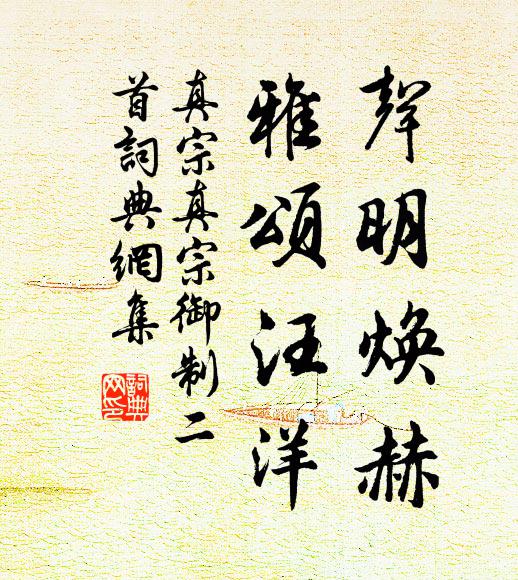 聲明煥赫
雅頌汪洋
真宗真宗御制二
首詞典網集
詞典
网印